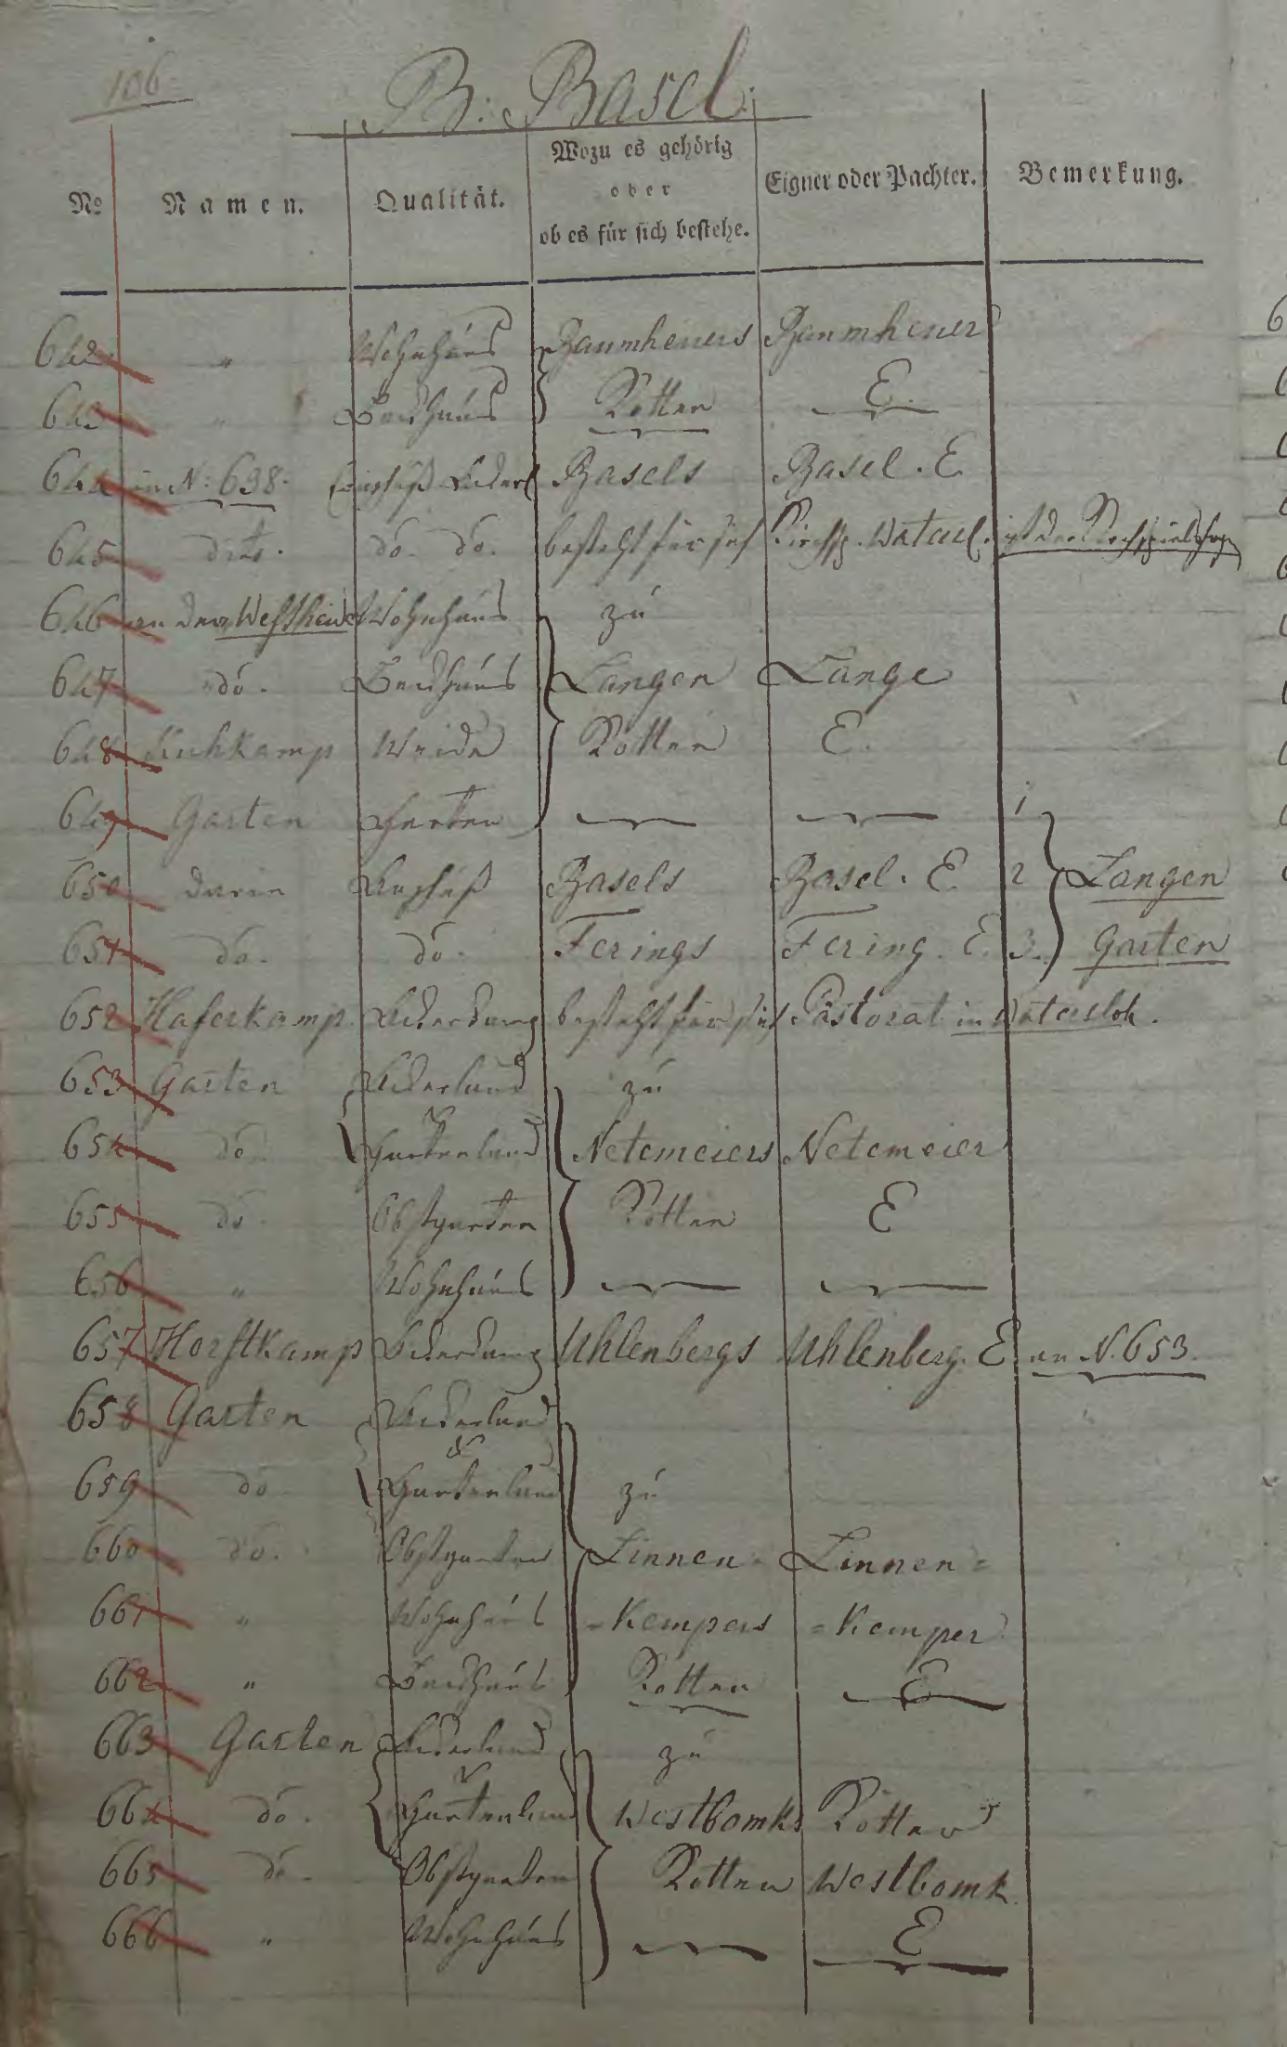 106
B: Basel
No Namen. Qualität. Wozu es gehörig oder ob es für sich bestehe. Eigner oder Pachter. Bemerkung.
642 " Wohnhaus Baumheuers Baumheuer
643 " Backhaus Kotten E.
644 in N: 698. Basels Basel. E
645 dito. do. do. besteht für sich Kirchsp. Watersl.
646 an der Westheide Wohnhaus zu
647 do. Backhaus Langen Lange
648 Kuhkamp Weide Kotten E.
649 Garten Garten 1
650 darin Zuschlag Basels Basel. E 2 Langen
651 do. do. Ferings Fering. E. 3. Garten
652 Haferkamp. besteht für sich Pastorat in Watersloh.
653 Garten Ackerland zu
654 do Gartenland Netemeiers Netemeier
655 do. Obstgarten Kotten E
656 " Wohnhaus
657 Horstkamp Uhlenbergs Uhlenberg. E an N. 653.
658 Garten Ackerland
659 do & Gartenland zu
660 do. Obstgarten Linnen- Linnen=
661 " Wohnhaus =Kempers =Kemper
662 " Backhaus Kotten E
663 Garten Ackerland zu
664 do. Gartenland Westbomks Kotten
665 do. Obstgarten Kotten Westbomk
666 " Wohnhaus E